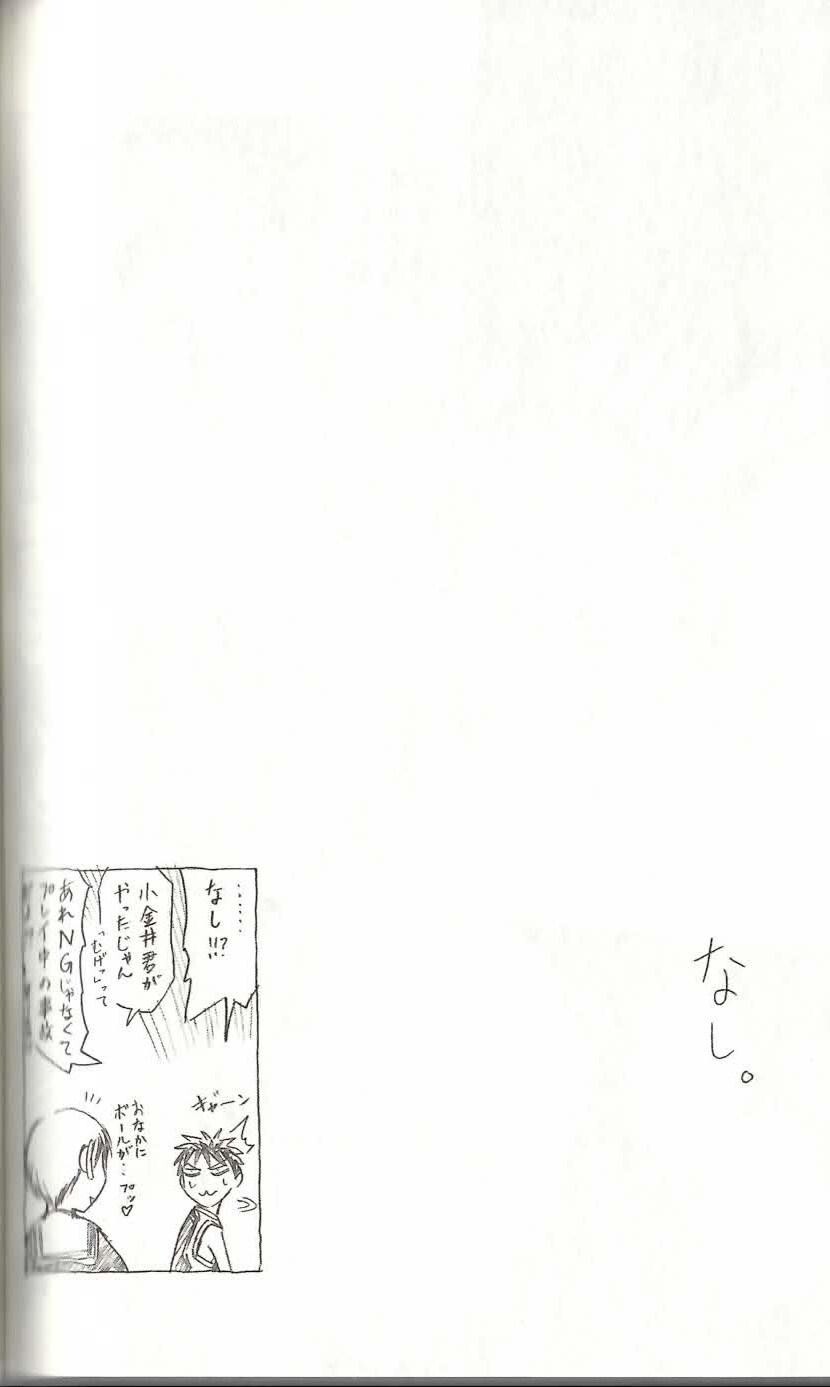 なし。
……
なし!!?
小金井君が
やったじゃん
「むげっ」って
あれNGじゃなくて
プレイ中の事故
ギャーン
おなかに
ボールが‥
プッ♡